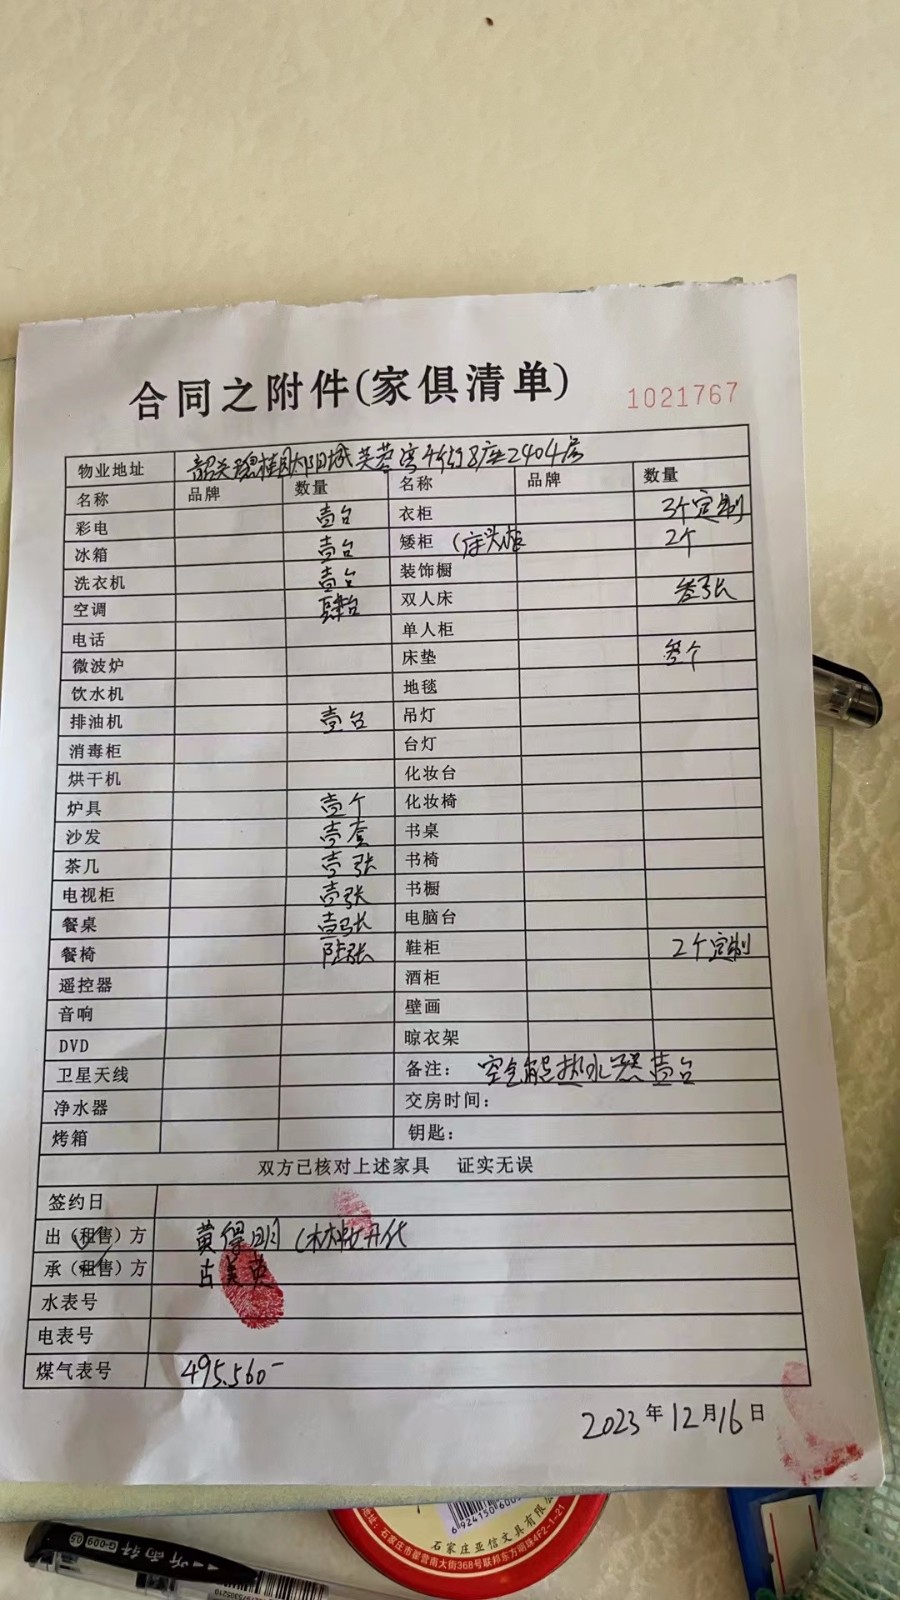 合同之附件(家俱清单)
1021767
物业地址 韶关碧桂园太阳城芙蓉湾 8座2404房
名称 品牌 数量 名称 品牌 数量
彩电 壹台 衣柜 3个定制
冰箱 壹台 矮柜 (床头柜 2个
洗衣机 壹台 装饰橱
空调 肆台 双人床 叁张
电话 单人柜
微波炉 床垫 叁个
饮水机 地毯
排油机 壹台 吊灯
消毒柜 台灯
烘干机 化妆台
炉具 壹个 化妆椅
沙发 壹套 书桌
茶几 壹张 书椅
电视柜 壹张 书橱
餐桌 壹张 电脑台
餐椅 陆张 鞋柜 2个定制
遥控器 酒柜
音响 壁画
DVD 晾衣架
卫星天线 备注: 空气能热水器壹台
净水器 交房时间:
烤箱 钥匙:
双方已核对上述家具 证实无误
签约日
出(租售)方 黄得明
承(租售)方 古美英
水表号
电表号
煤气表号 495.560-
2023年12月16日
6924150600
石家庄亚信文具有限
地址:石家庄市翟营南大街368号联邦东方明珠4F2-1-21
G-009 0.5